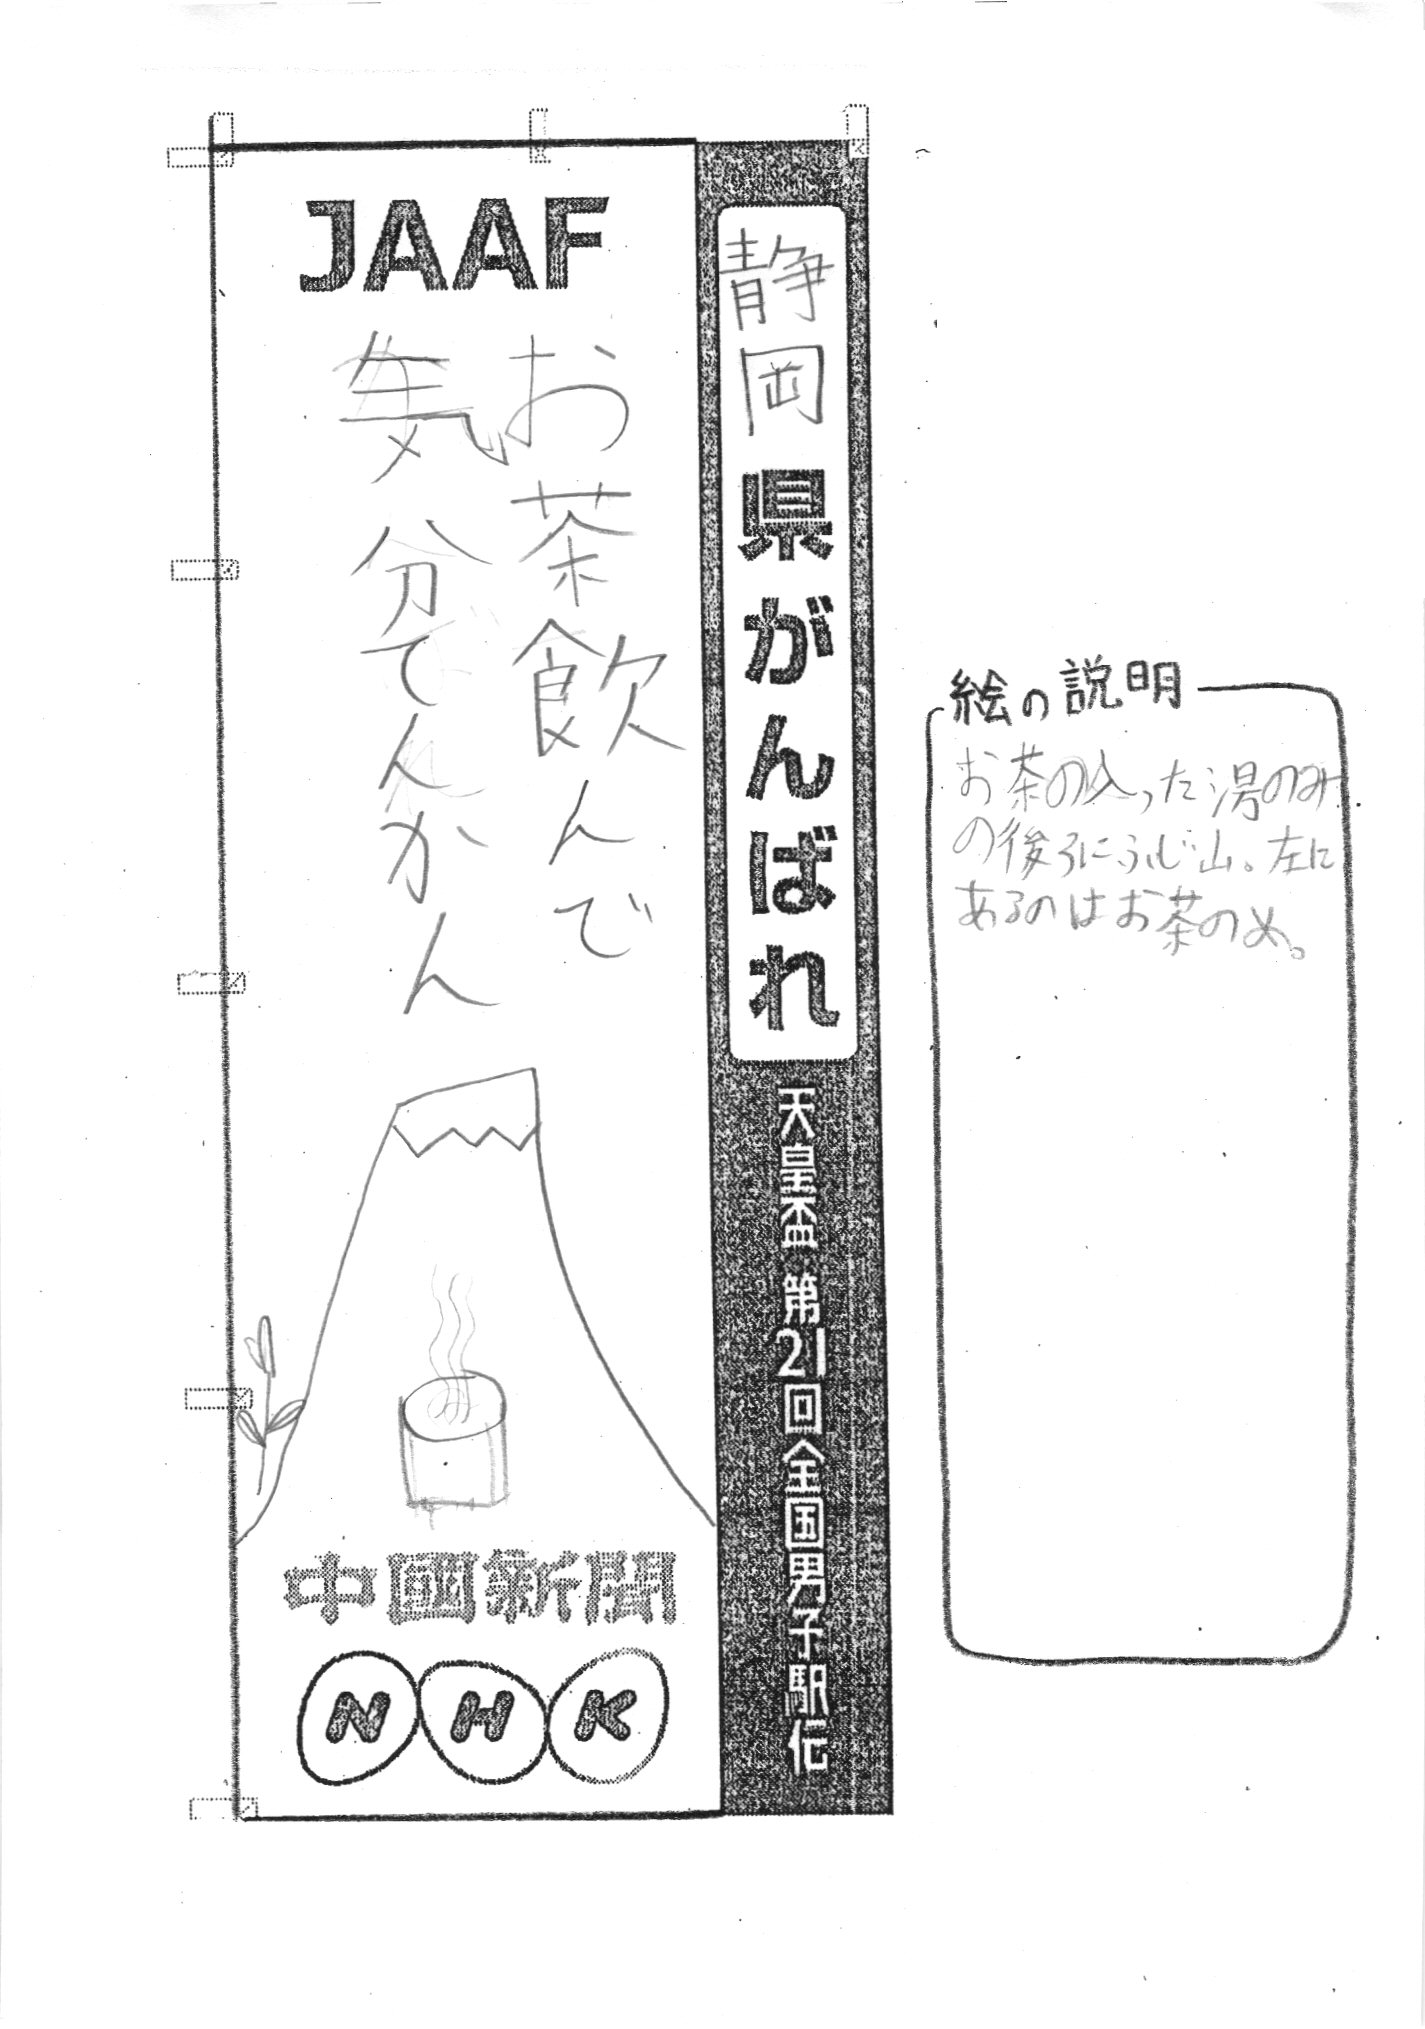 JAAF
静岡県がんばれ
天皇盃 第21回全国男子駅伝
お茶飲んで
気分てんかん
中國新聞
NHK
絵の説明
お茶の入った湯のみ
の後ろにふじ山。左に
あるのはお茶のめ。